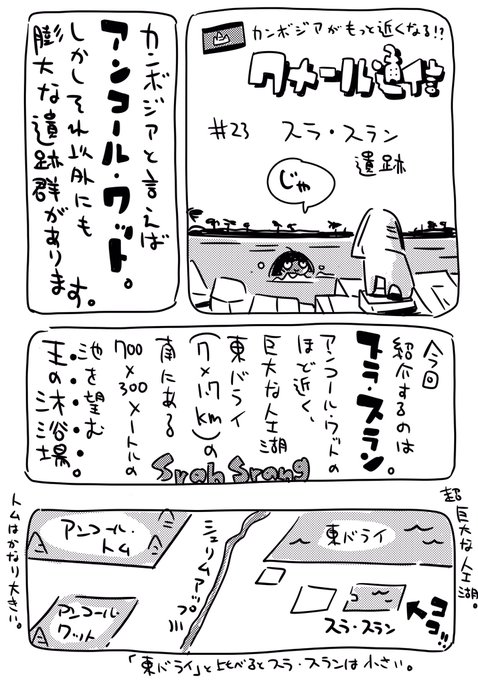 カンボジアがもっと近くなる!?
クメール通信
#23 スラ・スラン
遺跡
じゃ
カンボジアと言えば
アンコール・ワット。
しかしそれ以外にも
膨大な遺跡群があります。
今回
紹介するのは
スラ・スラン。
アンコール・ワットの
ほど近く、
巨大な人工湖
東バライ
(7×1.7km)の
南にある
700×300メートルの
池を望む
王の沐浴場。
Srah Srang
超巨大な人工湖。
東バライ
アンコール・
トム
シェムリアップ川
アンコール・
ワット
スラ・スラン
ココ!!
トムはかなり大きい。
「東バライ」と比べるとスラ・スランは小さい。